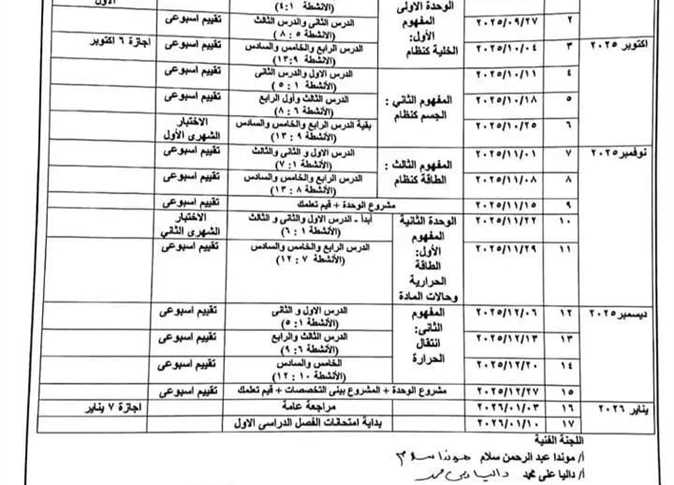 الوحدة الاولى (الأنشطة ١:٤) الأول
٢ ٢٠٢٥/٠٩/٢٧ المفهوم الأول: الخلية كنظام الدرس الثانى والدرس الثالث (الأنشطة ٥ : ٨) تقييم اسبوعى
اكتوبر ٢٠٢٥ ٣ ٢٠٢٥/١٠/٠٤ الدرس الرابع والخامس والسادس (الأنشطة ٩:١٣) تقييم اسبوعى اجازة ٦ اكتوبر
٤ ٢٠٢٥/١٠/١١ المفهوم الثاني : الجسم كنظام الدرس الاول والدرس الثانى (الأنشطة ١ : ٥) تقييم اسبوعى
٥ ٢٠٢٥/١٠/١٨ الدرس الثالث وأول الرابع (الأنشطة ٦ : ٨) تقييم اسبوعى
٦ ٢٠٢٥/١٠/٢٥ بقية الدرس الرابع والخامس والسادس (الأنشطة ٩ : ١٣) الاختبار الشهرى الأول
نوفمبر ٢٠٢٥ ٧ ٢٠٢٥/١١/٠١ المفهوم الثالث : الطاقة كنظام الدرس الاول و الثانى والثالث (الأنشطة ١ : ٧) تقييم اسبوعى
٨ ٢٠٢٥/١١/٠٨ الدرس الرابع والخامس والسادس (الأنشطة ٨ : ١٣) تقييم اسبوعى
٩ ٢٠٢٥/١١/١٥ مشروع الوحدة + قيم تعلمك تقييم اسبوعى
١٠ ٢٠٢٥/١١/٢٢ الوحدة الثانية المفهوم الأول: الطاقة الحرارية وحالات المادة أبدأ - الدرس الاول والثانى و الثالث (الأنشطة ١ : ٦) الاختبار الشهرى الثاني
١١ ٢٠٢٥/١١/٢٩ الدرس الرابع والخامس والسادس (الأنشطة ٧ : ١٢) تقييم اسبوعى
ديسمبر ٢٠٢٥ ١٢ ٢٠٢٥/١٢/٠٦ المفهوم الثانى: انتقال الحرارة الدرس الاول و الثانى (الأنشطة ١ : ٥) تقييم اسبوعى
١٣ ٢٠٢٥/١٢/١٣ الدرس الثالث والرابع (الأنشطة ٦ : ٩) تقييم اسبوعى
١٤ ٢٠٢٥/١٢/٢٠ الخامس والسادس (الأنشطة ١٠ : ١٢) تقييم اسبوعى
١٥ ٢٠٢٥/١٢/٢٧ مشروع الوحدة + المشروع بينى التخصصات + قيم تعلمك تقييم اسبوعى
يناير ٢٠٢٦ ١٦ ٢٠٢٦/٠١/٠٣ مراجعة عامة اجازة ٧ يناير
١٧ ٢٠٢٦/٠١/١٠ بداية امتحانات الفصل الدراسى الاول
اللجنة الفنية
أ/ موندا عبد الرحمن سلام موندا سلام
أ/ داليا على محمد داليا على محمد